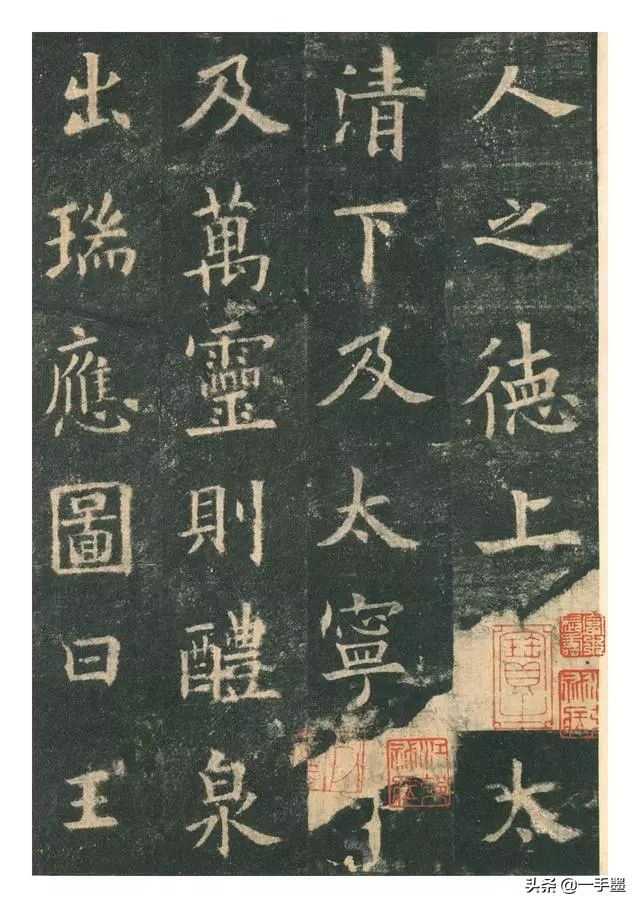 人之德上太
清下及太寧
及萬靈則醴泉
出瑞應圖曰王
头条 @一手墨